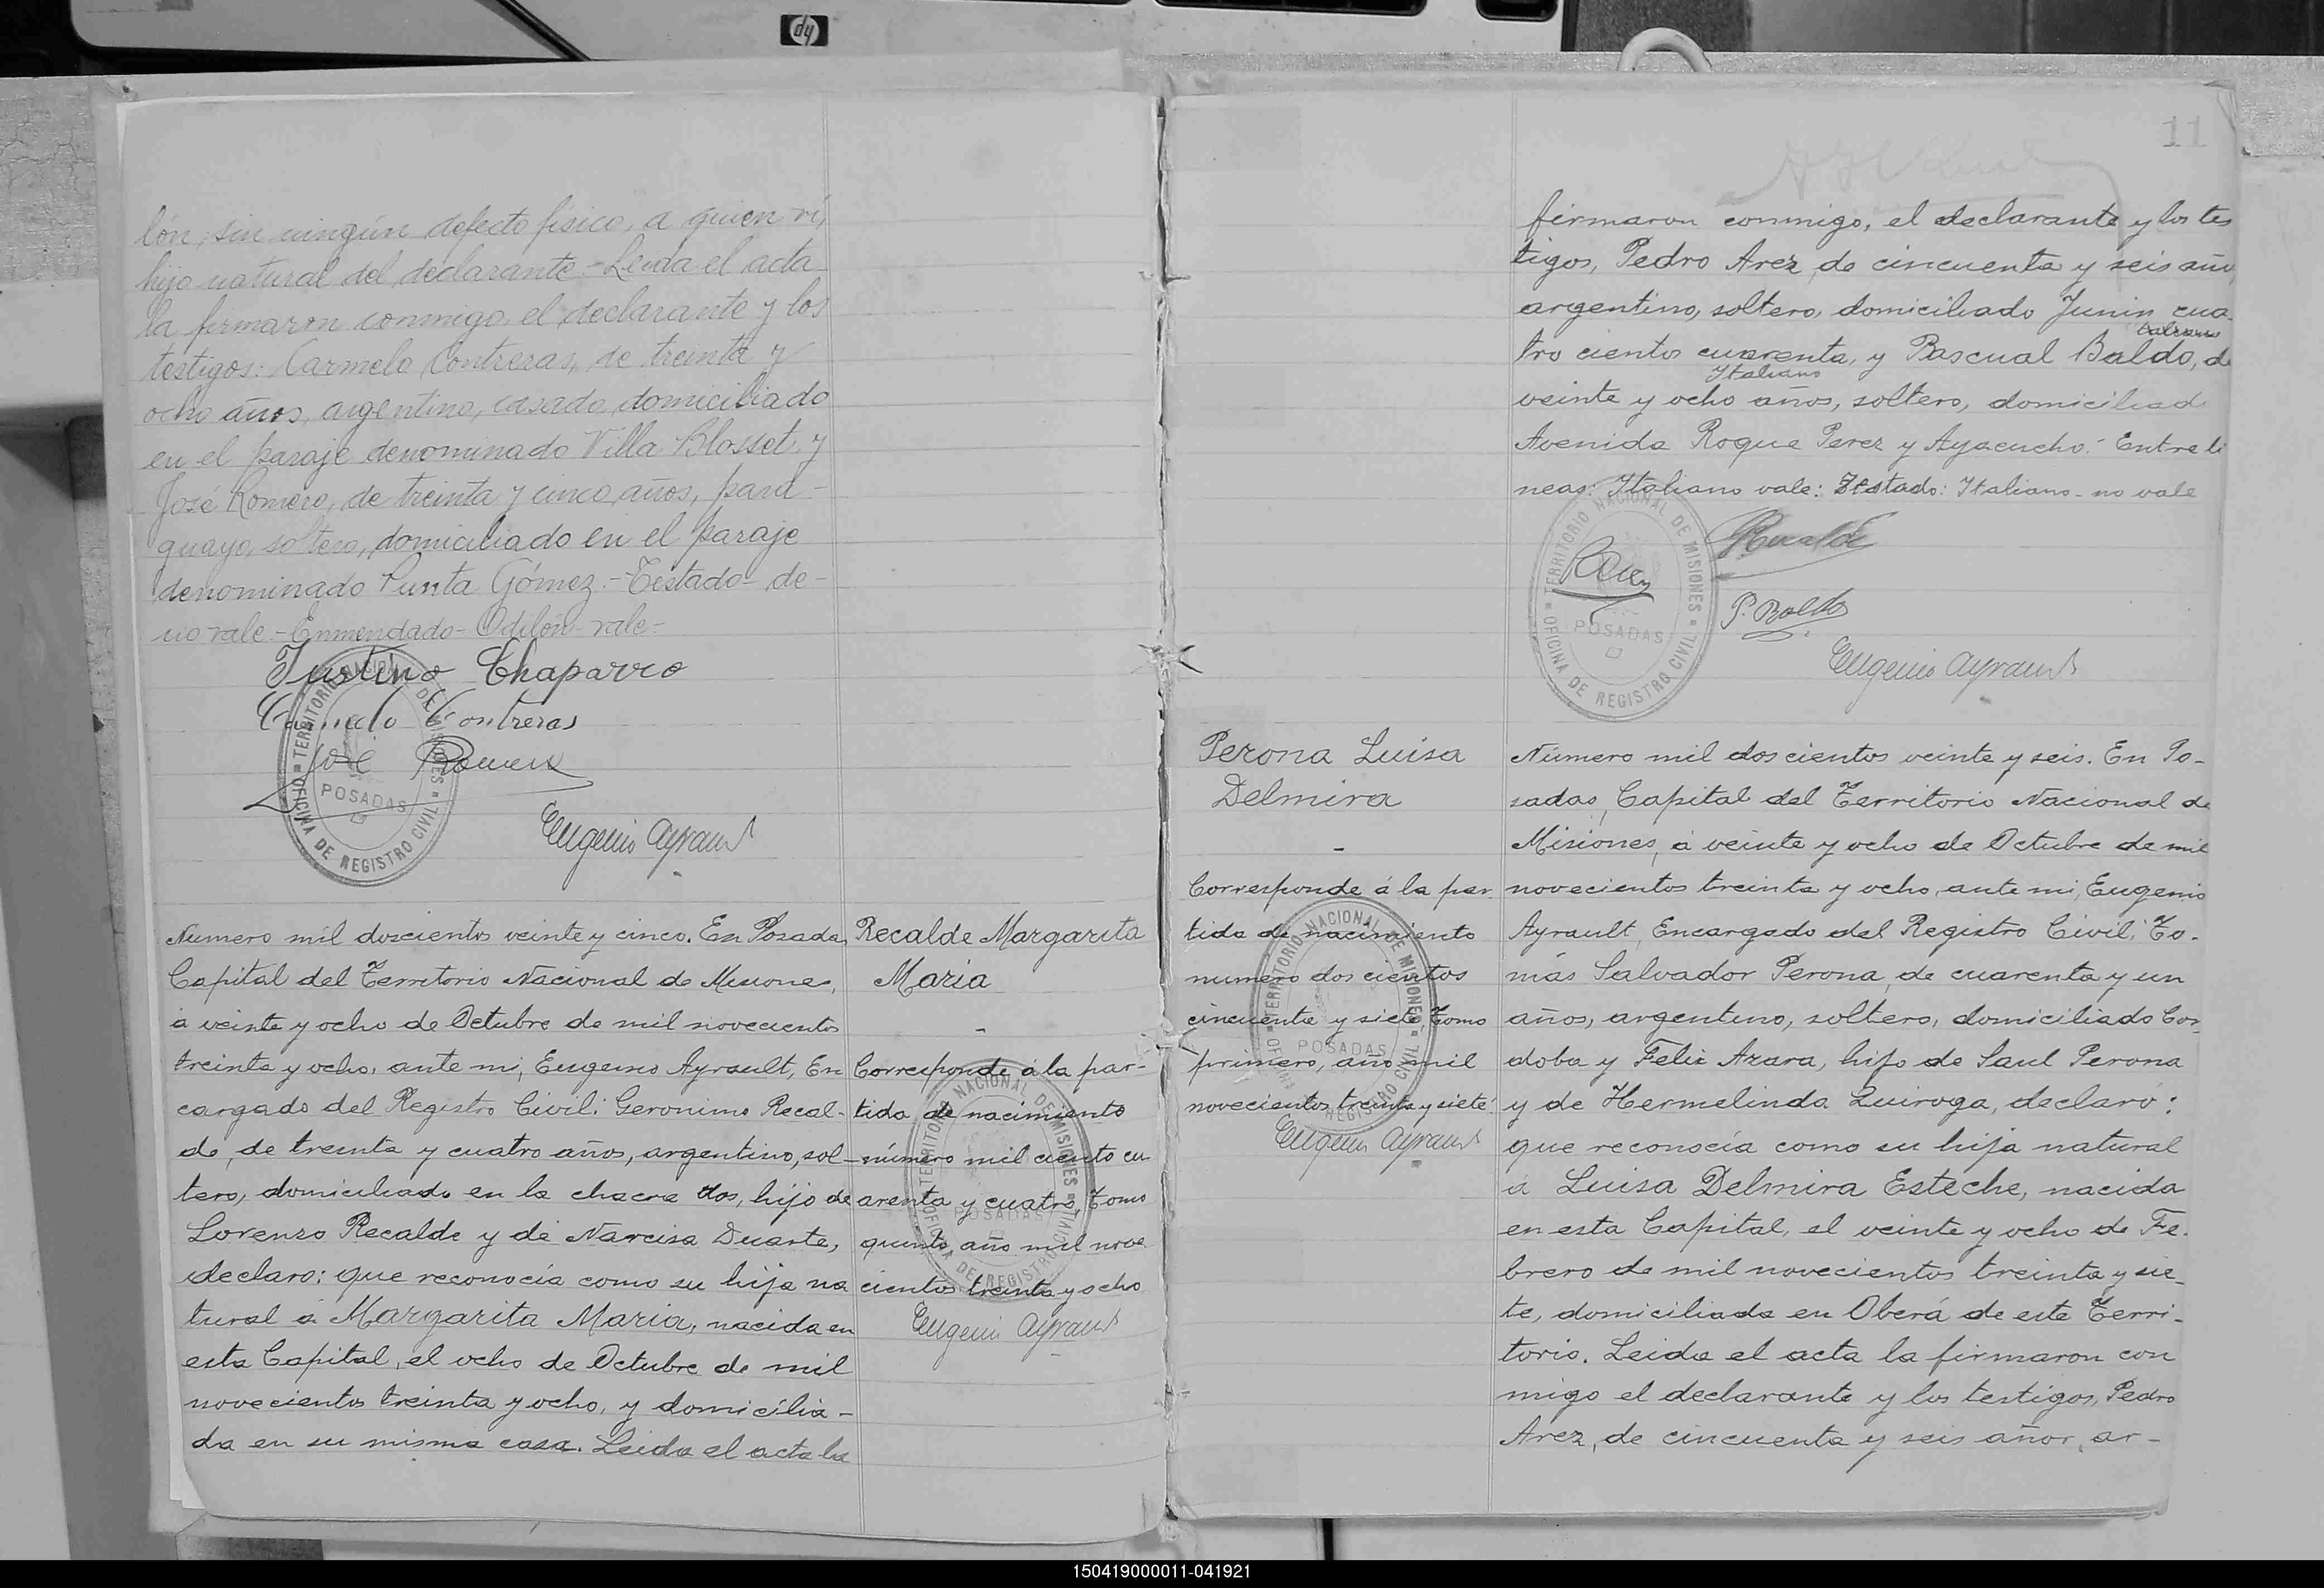 hp
lón, sin ningún defecto físico, a quien ví,
hijo natural del declarante.- Leida el acta
la firmaron conmigo el declarante y los
testigos: Carmelo Contreras, de treinta y
ocho años, argentino, casado, domiciliado
en el paraje denominado Villa Blosset, y
José Romero, de treinta y cinco años, para-
guayo, soltero, domiciliado en el paraje
denominado Punta Gómez.- Testado- de-
no vale.- Enmendado- Odilón- vale-
Justino Chaparro
Carmelo Contreras
José Romero
Eugenio Ayrault
TERRITORIO NACIONAL DE MISIONES
POSADAS
OFICINA DE REGISTRO CIVIL
Recalde Margarita
Maria
-
Corresponde á la par-
tida de nacimiento
número mil ciento cu
arenta y cuatro, Tomo
quinto, año mil nove
cientos treinta y ocho
Eugenio Ayrault
TERRITORIO NACIONAL DE MISIONES
POSADAS
OFICINA DE REGISTRO CIVIL
Numero mil doscientos veinte y cinco. En Posadas
Capital del Territorio Nacional de Misiones,
á veinte y ocho de Octubre de mil novecientos
treinta y ocho, ante mi, Eugenio Ayrault, En
cargado del Registro Civil: Geronimo Recal-
de, de treinta y cuatro años, argentino, sol-
tero, domiciliado en la chacra dos, hijo de
Lorenzo Recalde y de Narcisa Duarte,
declaro: que reconocía como su hija na
tural á Margarita Maria, nacida en
esta Capital, el ocho de Octubre de mil
novecientos treinta y ocho, y domicilia-
da en su misma casa. Leida el acta la
11
firmaron conmigo, el declarante y los tes
tigos, Pedro Arez, de cincuenta y seis años
argentino, soltero, domiciliado Junin cua
italiano
tro cientos cuarenta, y Pascual Baldo, de
Italiano
veinte y ocho años, soltero, domiciliado
Avenida Roque Perez y Ayacucho.- Entre li
neas: Italiano vale: Testado: Italiano- no vale
Recalde
P. Baldo
Eugenio Ayrault
TERRITORIO NACIONAL DE MISIONES
POSADAS
OFICINA DE REGISTRO CIVIL
Perona Luisa
Delmira
-
Corresponde á la par
tida de nacimiento
numero dos cientos
cincuenta y siete, Tomo
primero, año mil
novecientos treinta y siete
Eugenio Ayrault
TERRITORIO NACIONAL DE MISIONES
POSADAS
OFICINA DE REGISTRO CIVIL
Número mil dos cientos veinte y seis. En Po-
sadas, Capital del Territorio Nacional de
Misiones, á veinte y ocho de Octubre de mil
novecientos treinta y ocho, ante mi, Eugenio
Ayrault, Encargado del Registro Civil, To-
más Salvador Perona, de cuarenta y un
años, argentino, soltero, domiciliado Cor-
doba y Felix Azara, hijo de Saul Perona
y de Hermelinda Quiroga, declaró:
que reconocía como su hija natural
á Luisa Delmira Esteche, nacida
en esta Capital, el veinte y ocho de Fe-
brero de mil novecientos treinta y sie-
te, domiciliada en Oberá de este Terri-
torio. Leida el acta la firmaron con
migo el declarante y los testigos, Pedro
Arez, de cincuenta y seis años, ar-
150419000011-041921